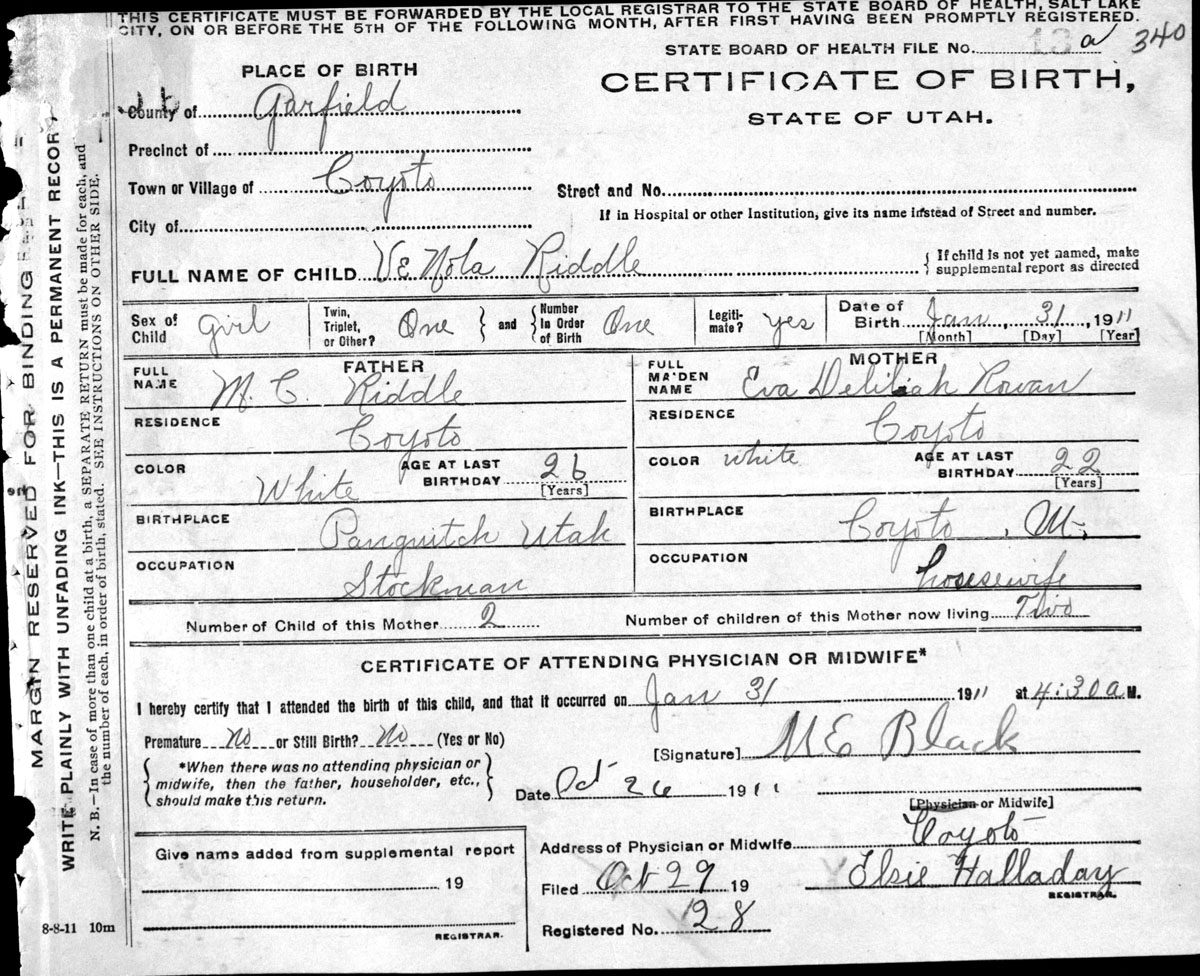 THIS CERTIFICATE MUST BE FORWARDED BY THE LOCAL REGISTRAR TO THE STATE BOARD OF HEALTH, SALT LAKE
CITY, ON OR BEFORE THE 5TH OF THE FOLLOWING MONTH, AFTER FIRST HAVING BEEN PROMPTLY REGISTERED.
STATE BOARD OF HEALTH FILE No. 13 a 340
PLACE OF BIRTH
CERTIFICATE OF BIRTH,
STATE OF UTAH.
County of Garfield
Precinct of
Town or Village of Coyoto
Street and No.
If in Hospital or other Institution, give its name instead of Street and number.
City of
FULL NAME OF CHILD VE Nola Riddle
{ If child is not yet named, make
supplemental report as directed
Sex of Child girl
Twin, Triplet, or Other? One } and { Number In Order of Birth One
Legiti-mate? yes
Date of Birth Jan, 31, 1911
[Month] [Day] [Year]
FATHER
FULL NAME M. C. Riddle
RESIDENCE Coyoto
COLOR White
AGE AT LAST BIRTHDAY 26
[Years]
BIRTHPLACE Panguitch Utah
OCCUPATION Stockman
MOTHER
FULL MAIDEN NAME Eva Deliliah Rowan
RESIDENCE Coyoto
COLOR white
AGE AT LAST BIRTHDAY 22
[Years]
BIRTHPLACE Coyoto, Ut.
OCCUPATION housewife
Number of Child of this Mother 2
Number of children of this Mother now living Two
CERTIFICATE OF ATTENDING PHYSICIAN OR MIDWIFE*
I hereby certify that I attended the birth of this child, and that it occurred on Jan 31 1911 at 4:30 a M.
Premature No or Still Birth? No (Yes or No)
[Signature] M E Black
{ *When there was no attending physician or
midwife, then the father, householder, etc.,
should make this return. }
Date Oct 26 1911
[Physician or Midwife]
Address of Physician or Midwife Coyoto
Filed Oct 29 19
Elsie Halladay
REGISTRAR.
Registered No. 28
Give name added from supplemental report
19
REGISTRAR.
8-8-11 10m
MARGIN RESERVED FOR BINDING
WRITE PLAINLY WITH UNFADING INK—THIS IS A PERMANENT RECOR
N. B.—In case of more than one child at a birth, a SEPARATE RETURN must be made for each, and
the number of each, in order of birth, stated. SEE INSTRUCTIONS ON OTHER SIDE.